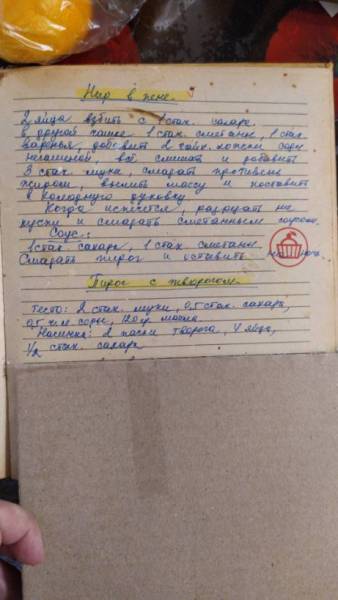 Нир в пене.
2 яйца взбить с 1 стак. сахара.
В другой чашке 1 стак. сметаны, 1 стак.
варенья, добавить 2 чайн. ложки соды
негашеной, всё смешать и добавить
3 стак. муки, смазать противень
жиром, вылить массу и поставить
в холодную духовку
Когда испечется, разрезать на
куски и смазать сметанным соусом.
Соус:
1 стак сахара, 1 стак сметаны.
Смазать пирог и оставить на ночь.
Пирог с творогом.
Тесто: 2 стак. муки, 0,5 стак. сахара,
0,5 ч.л. соды, 120 гр. масла.
Начинка: 2 пачки творога, 4 яйца,
1/2 стак. сахара